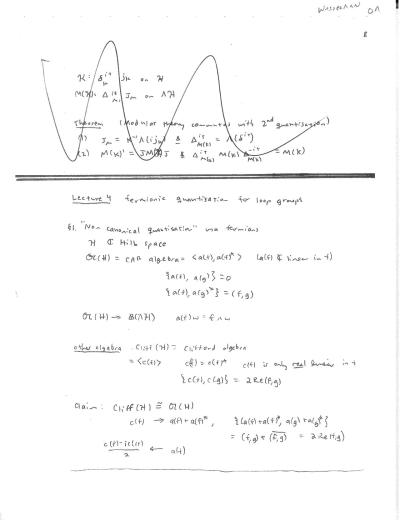 WASSERMAN OA
8
K: δ_K^{it} j_K on H
M(K): Δ_{M}^{it} J_M on ΛH
Theorem (Modular theory commutes with 2nd quantisation)
(1) J_M = K^{-1} Λ(i j_K) & Δ_{M(K)}^{it} = Λ(δ^{it})
(2) M(K)' = J M(K) J & Δ_{M(K)}^{it} M(K) Δ_{M(K)}^{-it} = M(K)
Lecture 4 fermionic quantisation for loop groups
§1. "Non canonical quantisation" via fermions
H ℂ Hilb space
Ol(H) = CAR algebra = <a(f), a(f)*> (a(f) ℂ linear in f)
{a(f), a(g)} = 0
{a(f), a(g)*} = (f,g)
Ol(H) → B(ΛH) a(f)w = f ∧ w
other algebra Cliff(H) = Clifford algebra
= <c(f)> c(f) = c(f)* c(f) is only real linear in f
{c(f), c(g)} = 2Re(f,g)
Claim: Cliff(H) ≅ Ol(H)
c(f) → a(f)+a(f)*, {a(f)+a(f)*, a(g)+a(g)*}
= (f,g) + \overline{(f,g)} = 2Re(f,g)
\frac{c(f) - ic(if)}{2} ← a(f)